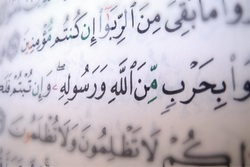 وا۟ مَا بَقِىَ مِنَ ٱلرِّبَوٰٓا۟ إِن كُنتُم مُّؤْمِنِينَ
وا۟ بِحَرْبٍ مِّنَ ٱللَّهِ وَرَسُولِهِۦ ۖ وَإِن تُبْتُمْ
لَا تَظْلِمُونَ وَلَا تُظْلَمُونَ